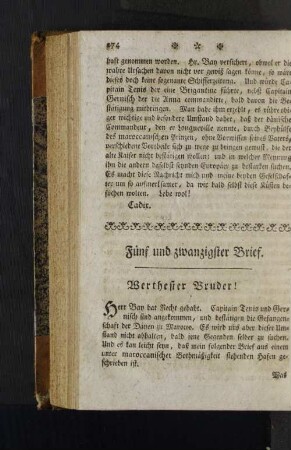 874 * * *
haft genommen worden. Hr. Bay versichert, obwol er die
wahre Ursachen davon nicht vor gewiß sagen könne, so wäre
dieses doch keine sogenante Schifferzeitung. Und würde Ca-
pitain Tenis der eine Brigantine führte, nebst Capitain
Germisch der die Anna commandirte, bald davon die Be-
stätigung mitbringen. Man habe ihm erzehlt, es rühre obi-
ger wichtige und besondere Umstand daher, daß der dänische
Commandeur, den er hinguvville nennte, durch Beyhülfe
des maroccanischen Prinzen, ohne Vorwissen seines Vaters,
verschiedene Vortheile sich zu wege zu bringen gewust, die der
alte Kaiser nicht bestätigen wollen; und in welcher Meinung
ihn die andern daselbst seynden Europäer zu bestärken suchen.
Es macht diese Nachricht mich und meine beyden Gesellschaf-
ter um so aufmerksamer, da wir bald selbst diese Küsten be-
suchen wollen. Lebe wol!
Cadix.
Fünf und zwanzigster Brief.
Werthester Bruder!
Herr Bay hat Recht gehabt. Capitain Tenis und Ger-
misch sind angekommen, und bestättigen die Gefangen-
schaft der Dänen zu Marocos. Es wird uns aber dieser Um-
stand nicht abhalten, bald jene Gegenden selber zu suchen.
Und es kan leicht seyn, daß mein folgender Brief aus einem
unter maroccanischer Bothmäßigkeit stehenden Hafen ge-
schrieben ist.
Was